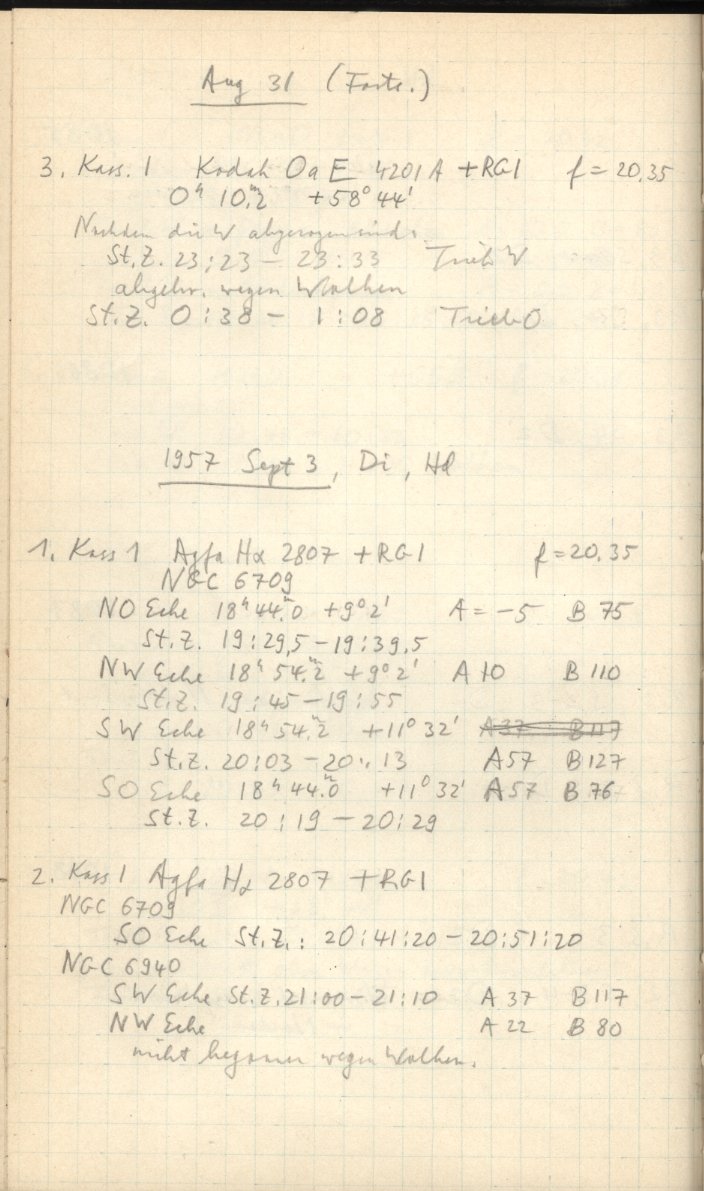 Aug 31 (Forts.)
3. Kass. 1 Kodak Oa E 4201 A + RG1 f = 20,35
0ʰ 10,ᵐ2 +58° 44'
Nachdem die W abgezogen sind:
St.Z. 23:23 – 23:33 Trieb W
abgebr. wegen Wolken
St.Z. 0:38 – 1:08 Trieb O
1957 Sept 3, Di, Hd
1. Kass 1 Agfa Hα 2807 + RG1 f = 20,35
NGC 6709
NO Ecke 18ʰ 44,ᵐ0 +9° 2' A = -5 B 75
St.Z. 19:29,5 – 19:39,5
NW Ecke 18ʰ 54,ᵐ2 +9° 2' A 10 B 110
St.Z. 19:45 – 19:55
SW Ecke 18ʰ 54,ᵐ2 +11° 32' A 37 B 117
St.Z. 20:03 – 20:13 A 57 B 127
SO Ecke 18ʰ 44,ᵐ0 +11° 32' A 57 B 76
St.Z. 20:19 – 20:29
2. Kass 1 Agfa Hα 2807 + RG1
NGC 6709
SO Ecke St.Z.: 20:41:20 – 20:51:20
NGC 6940
SW Ecke St.Z. 21:00 – 21:10 A 37 B 117
NW Ecke A 22 B 80
nicht begonnen wegen Wolken.